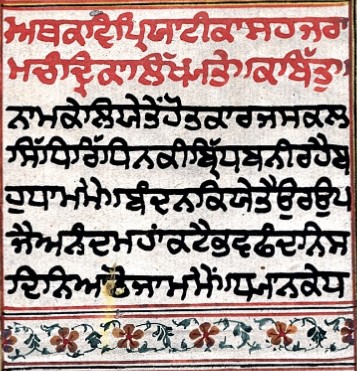 ਅਥਕਵਿਪ੍ਰਿਯਾਟੀਕਾਸਹਜਰਾ
ਮਚੰਦ੍ਰਿਕਾਲਿੱਖਯਤੇ॥ਕਬਿੱਤੁ॥
ਨਾਮਕੇਲਿਯੇਤੇਂਹੋਤਕਾਰਜਸਕਲ
ਸਿੱਧਿਰਿੱਧਿਨਕੀਬ੍ਰਿੱਧਬਨੀਰਹੈਬ
ਹੁਧਾਮਮੇਂ॥ਬੰਦਨਾਕਿਯੇਤੈਉਰਉਪ
ਜੈਅਨੰਦਮਹਾਂਕਟੈਭਵਫੰਦਨਿਸ
ਦਿਨਿਆਠੋਜਾਮਮੇਂ॥ਧਯਾਨਕੇਧ